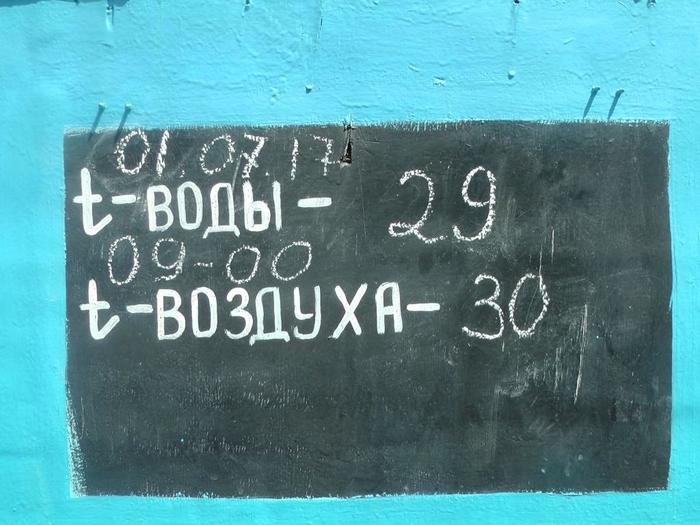 01.07.17
t-ВОДЫ- 29
09-00
t-ВОЗДУХА- 30